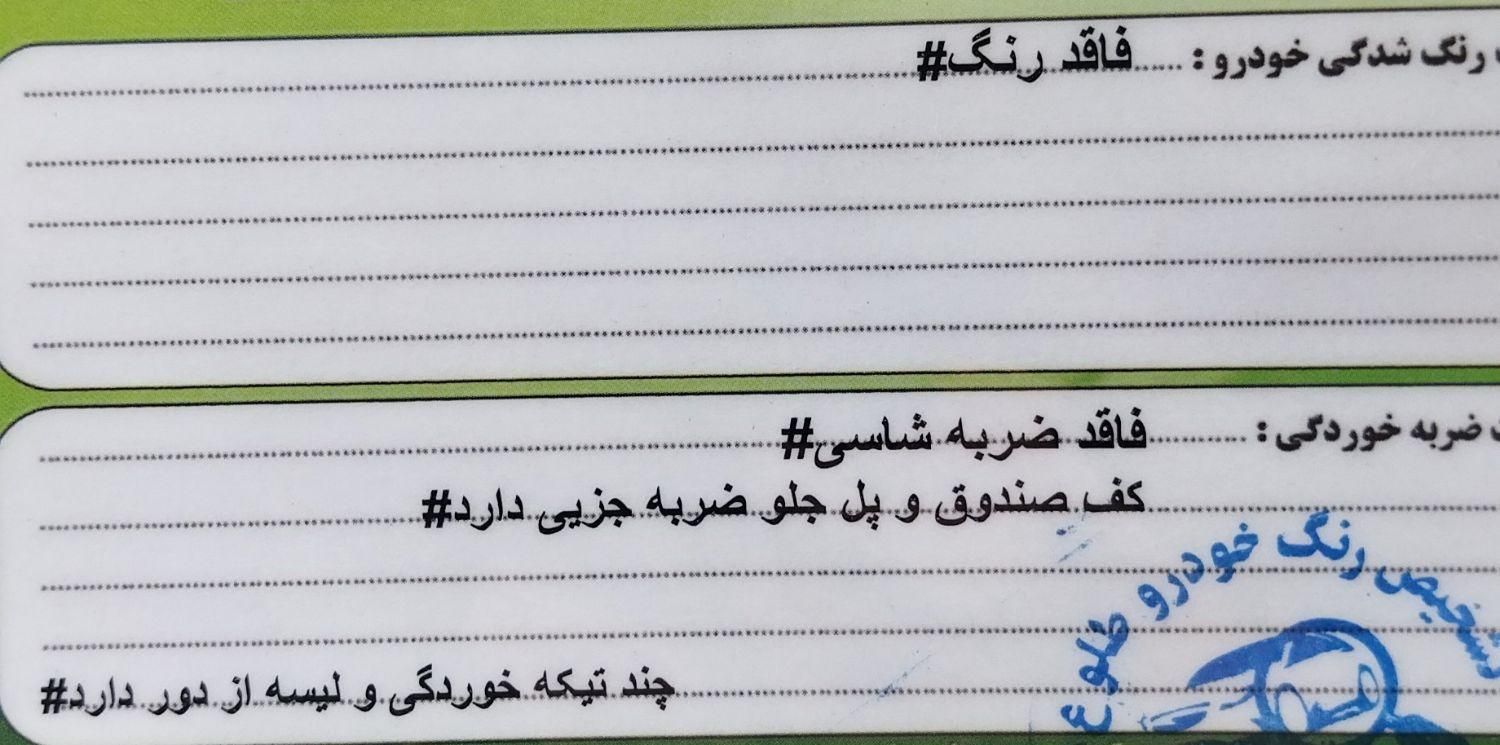 رنگ شدگی خودرو : فاقد رنگ#
ضربه خوردگی : فاقد ضربه شاسی#
کف صندوق و پل جلو ضربه جزیی دارد#
تشخیص رنگ خودرو طلوع
چند تیکه خوردگی و لیسه از دور دارد#